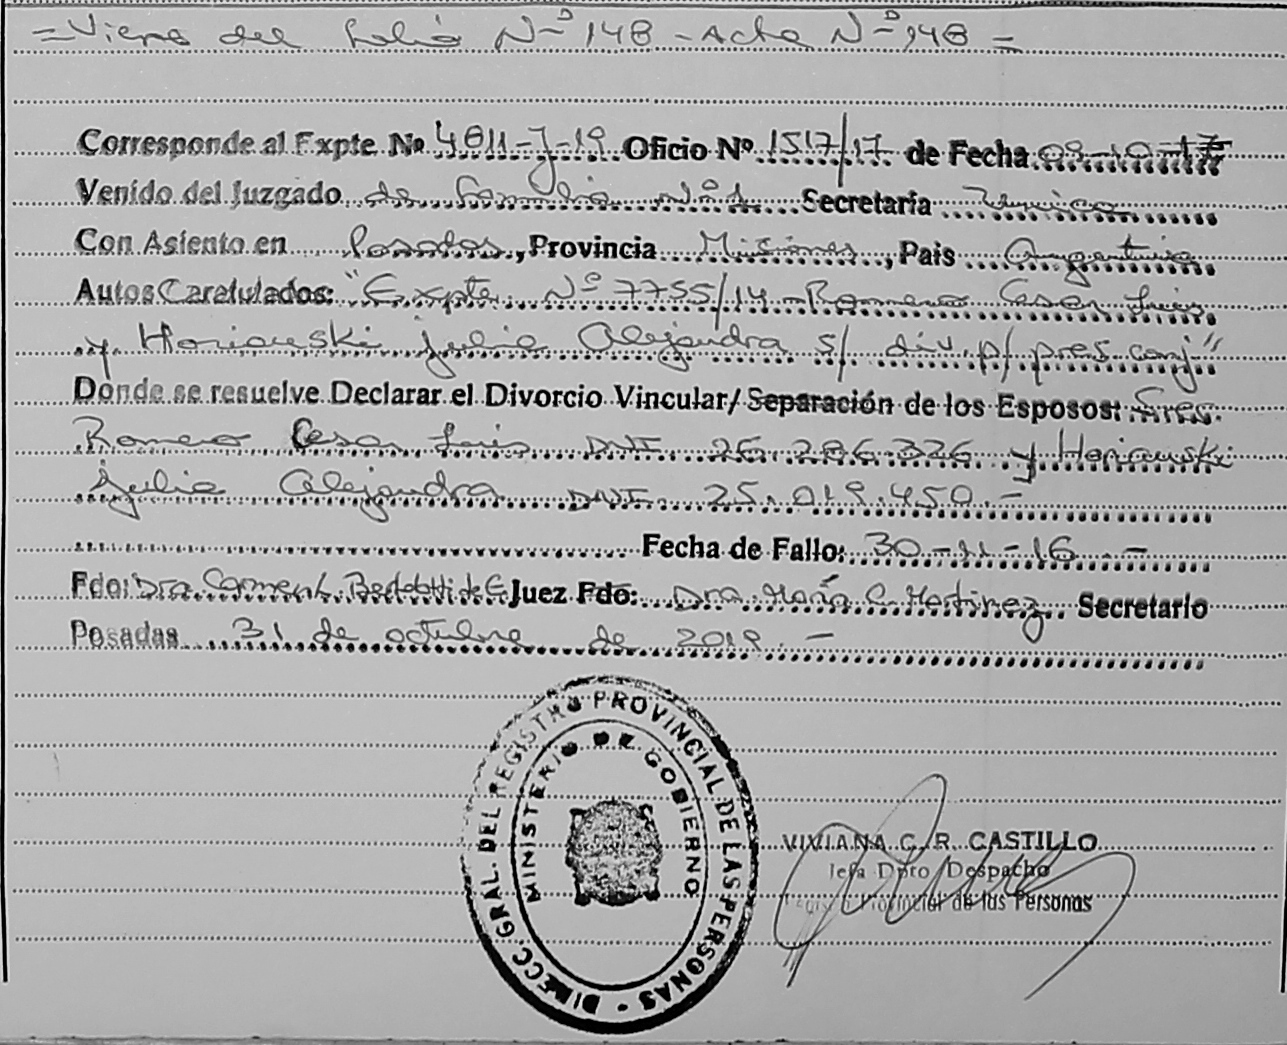 = Viene del folio Nº 148 - Acta Nº 148 =
Corresponde al Expte Nº 4811-J-19 Oficio Nº 1517/17 de Fecha 09-10-17
Venido del Juzgado de Familia Nº 1 Secretaría Unica
Con Asiento en Posadas, Provincia Misiones, Pais Argentina
Autos Caratulados: "Expte Nº 7755/14 - Romero Cesar Luis
y Honiauski Julia Alejandra s/ div. p/ pres. conj"
Donde se resuelve Declarar el Divorcio Vincular/ Separación de los Esposos: Sres.
Romero Cesar Luis DNI 26.286.326 y Honiauski
Julia Alejandra DNI. 25.019.450.-
Fecha de Fallo: 30-11-16.-
Fdo: Dra. Carmen Juez Fdo: Dra. María C. Martinez. Secretario
Posadas 31 de octubre de 2019.-
DIRECC. GRAL. DEL REGISTRO PROVINCIAL DE LAS PERSONAS -
MINISTERIO DE GOBIERNO
VIVIANA C. R. CASTILLO
Jefa Dpto Despacho
Registro Provincial de las Personas